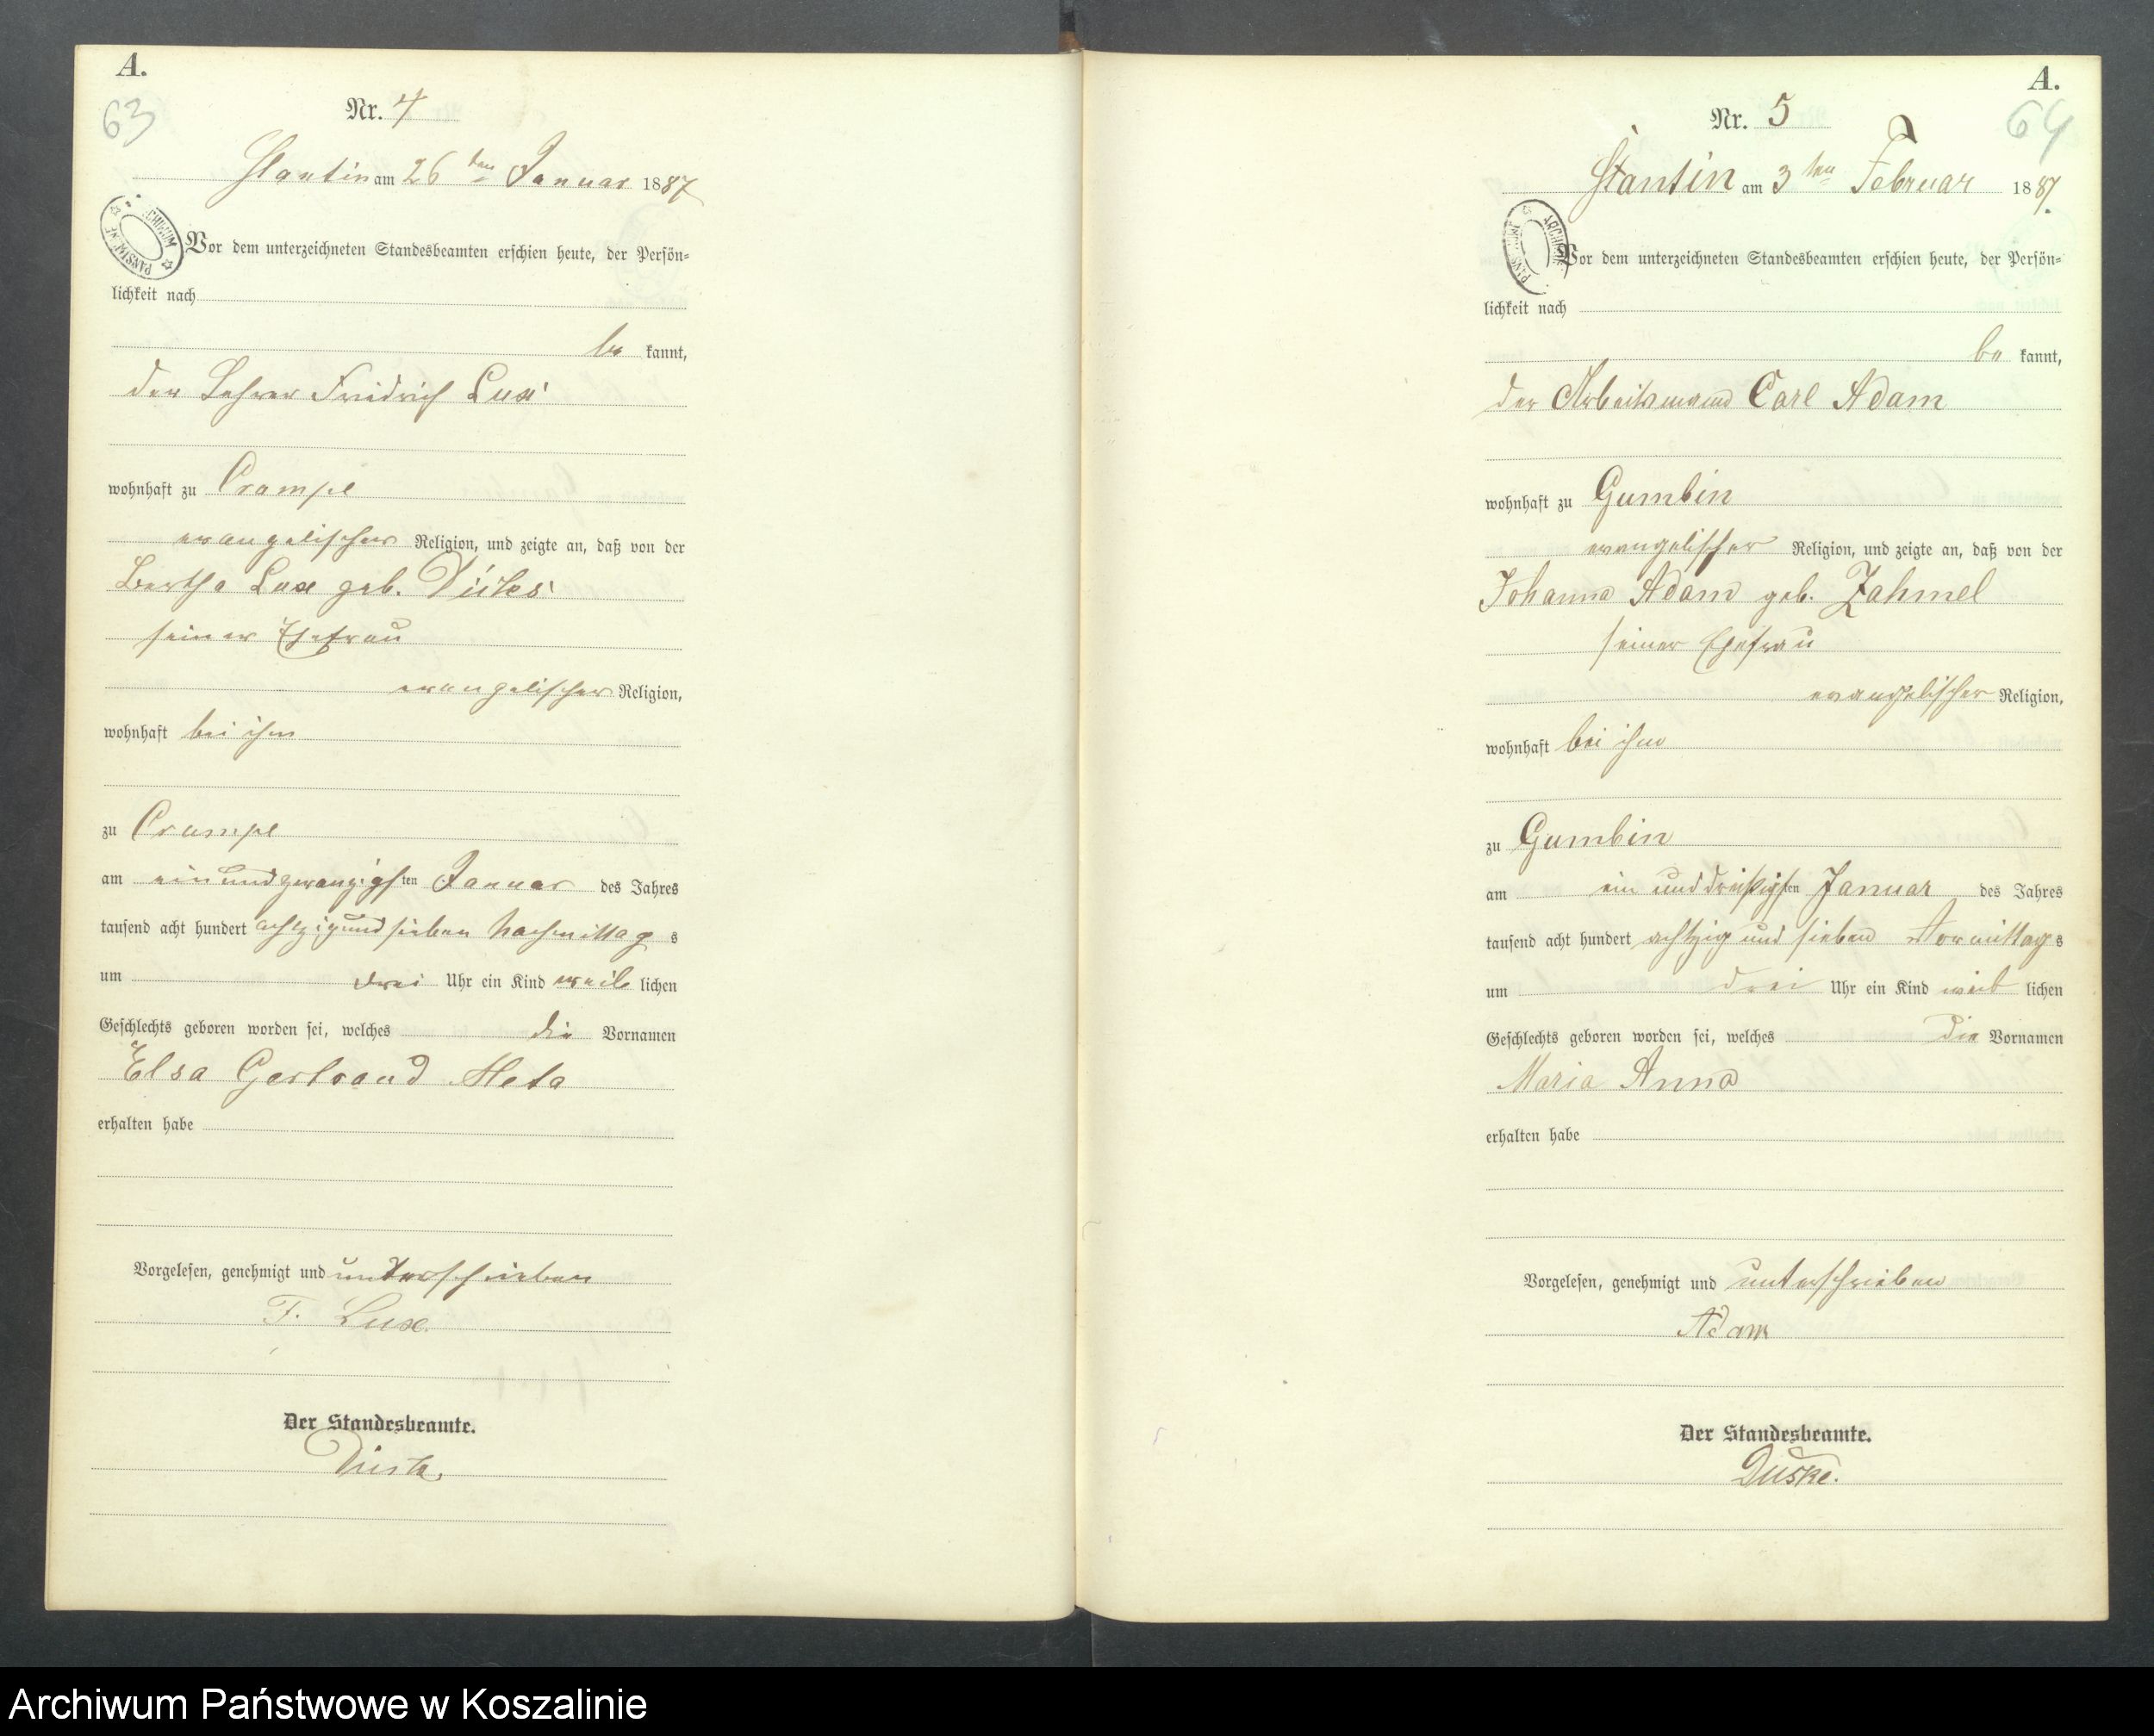 A.
63
Nr. 4
Stantin am 26ten Januar 1887
Vor dem unterzeichneten Standesbeamten erschien heute, der Persön-
lichkeit nach
be kannt,
der Lehrer Friedrich Lux
wohnhaft zu Crampe
evangelischer Religion, und zeigte an, daß von der
Bertha Lux geb.
seiner Ehefrau
evangelischer Religion,
wohnhaft bei ihm
zu Crampe
am einundzwanzigsten Januar des Jahres
tausend acht hundert achtzig und sieben Nachmittags
um drei Uhr ein Kind weiblichen
Geschlechts geboren worden sei, welches die Vornamen
Elsa Gertraud Meta
erhalten habe
Vorgelesen, genehmigt und unterschrieben
F. Lux.
Der Standesbeamte.
A.
64
Nr. 5
Stantin am 3ten Februar 1887.
Vor dem unterzeichneten Standesbeamten erschien heute, der Persön-
lichkeit nach
be kannt,
der Arbeitsmann Carl Adam
wohnhaft zu Gumbin
evangelischer Religion, und zeigte an, daß von der
Johanna Adam geb. Zahmel
seiner Ehefrau
evangelischer Religion,
wohnhaft bei ihm
zu Gumbin
am ein und dreißigsten Januar des Jahres
tausend acht hundert achtzig und sieben Vormittags
um drei Uhr ein Kind weiblichen
Geschlechts geboren worden sei, welches die Vornamen
Maria Anna
erhalten habe
Vorgelesen, genehmigt und unterschrieben
Adam
Der Standesbeamte.
Duske.
Archiwum Państwowe w Koszalinie